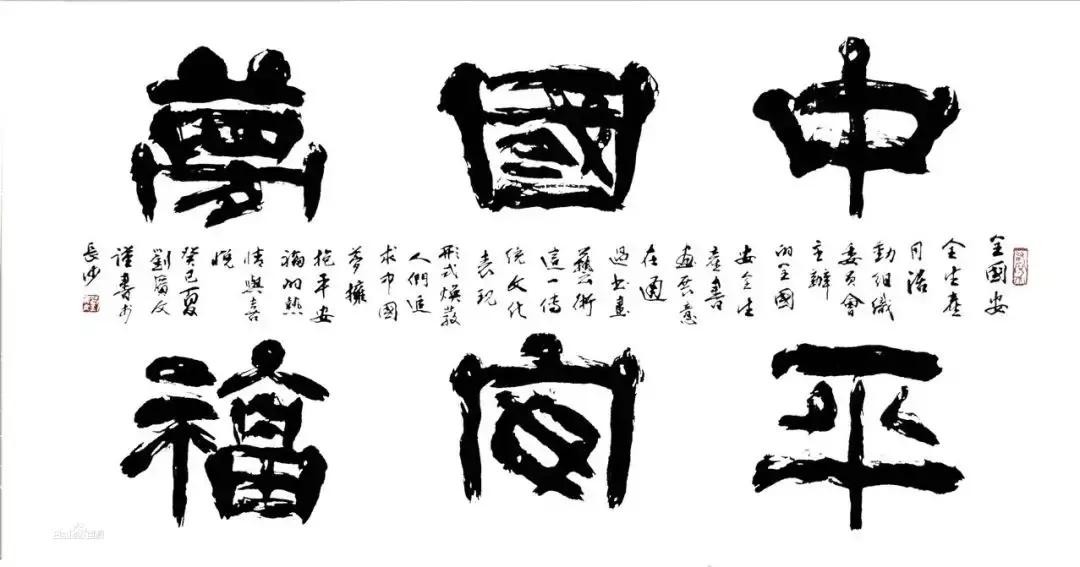 中國夢
全國安
全生產
月活
動組織
委員會
主辦
的全國
安全生
產書
畫展意
在通
過書畫
藝術
這一傳
統文化
表現
形式煥發
人們追
求中國
夢擁
抱平安
福的熱
情與喜
悅
癸巳夏
劉文
謹書於
長沙
平安福
Baidu百科